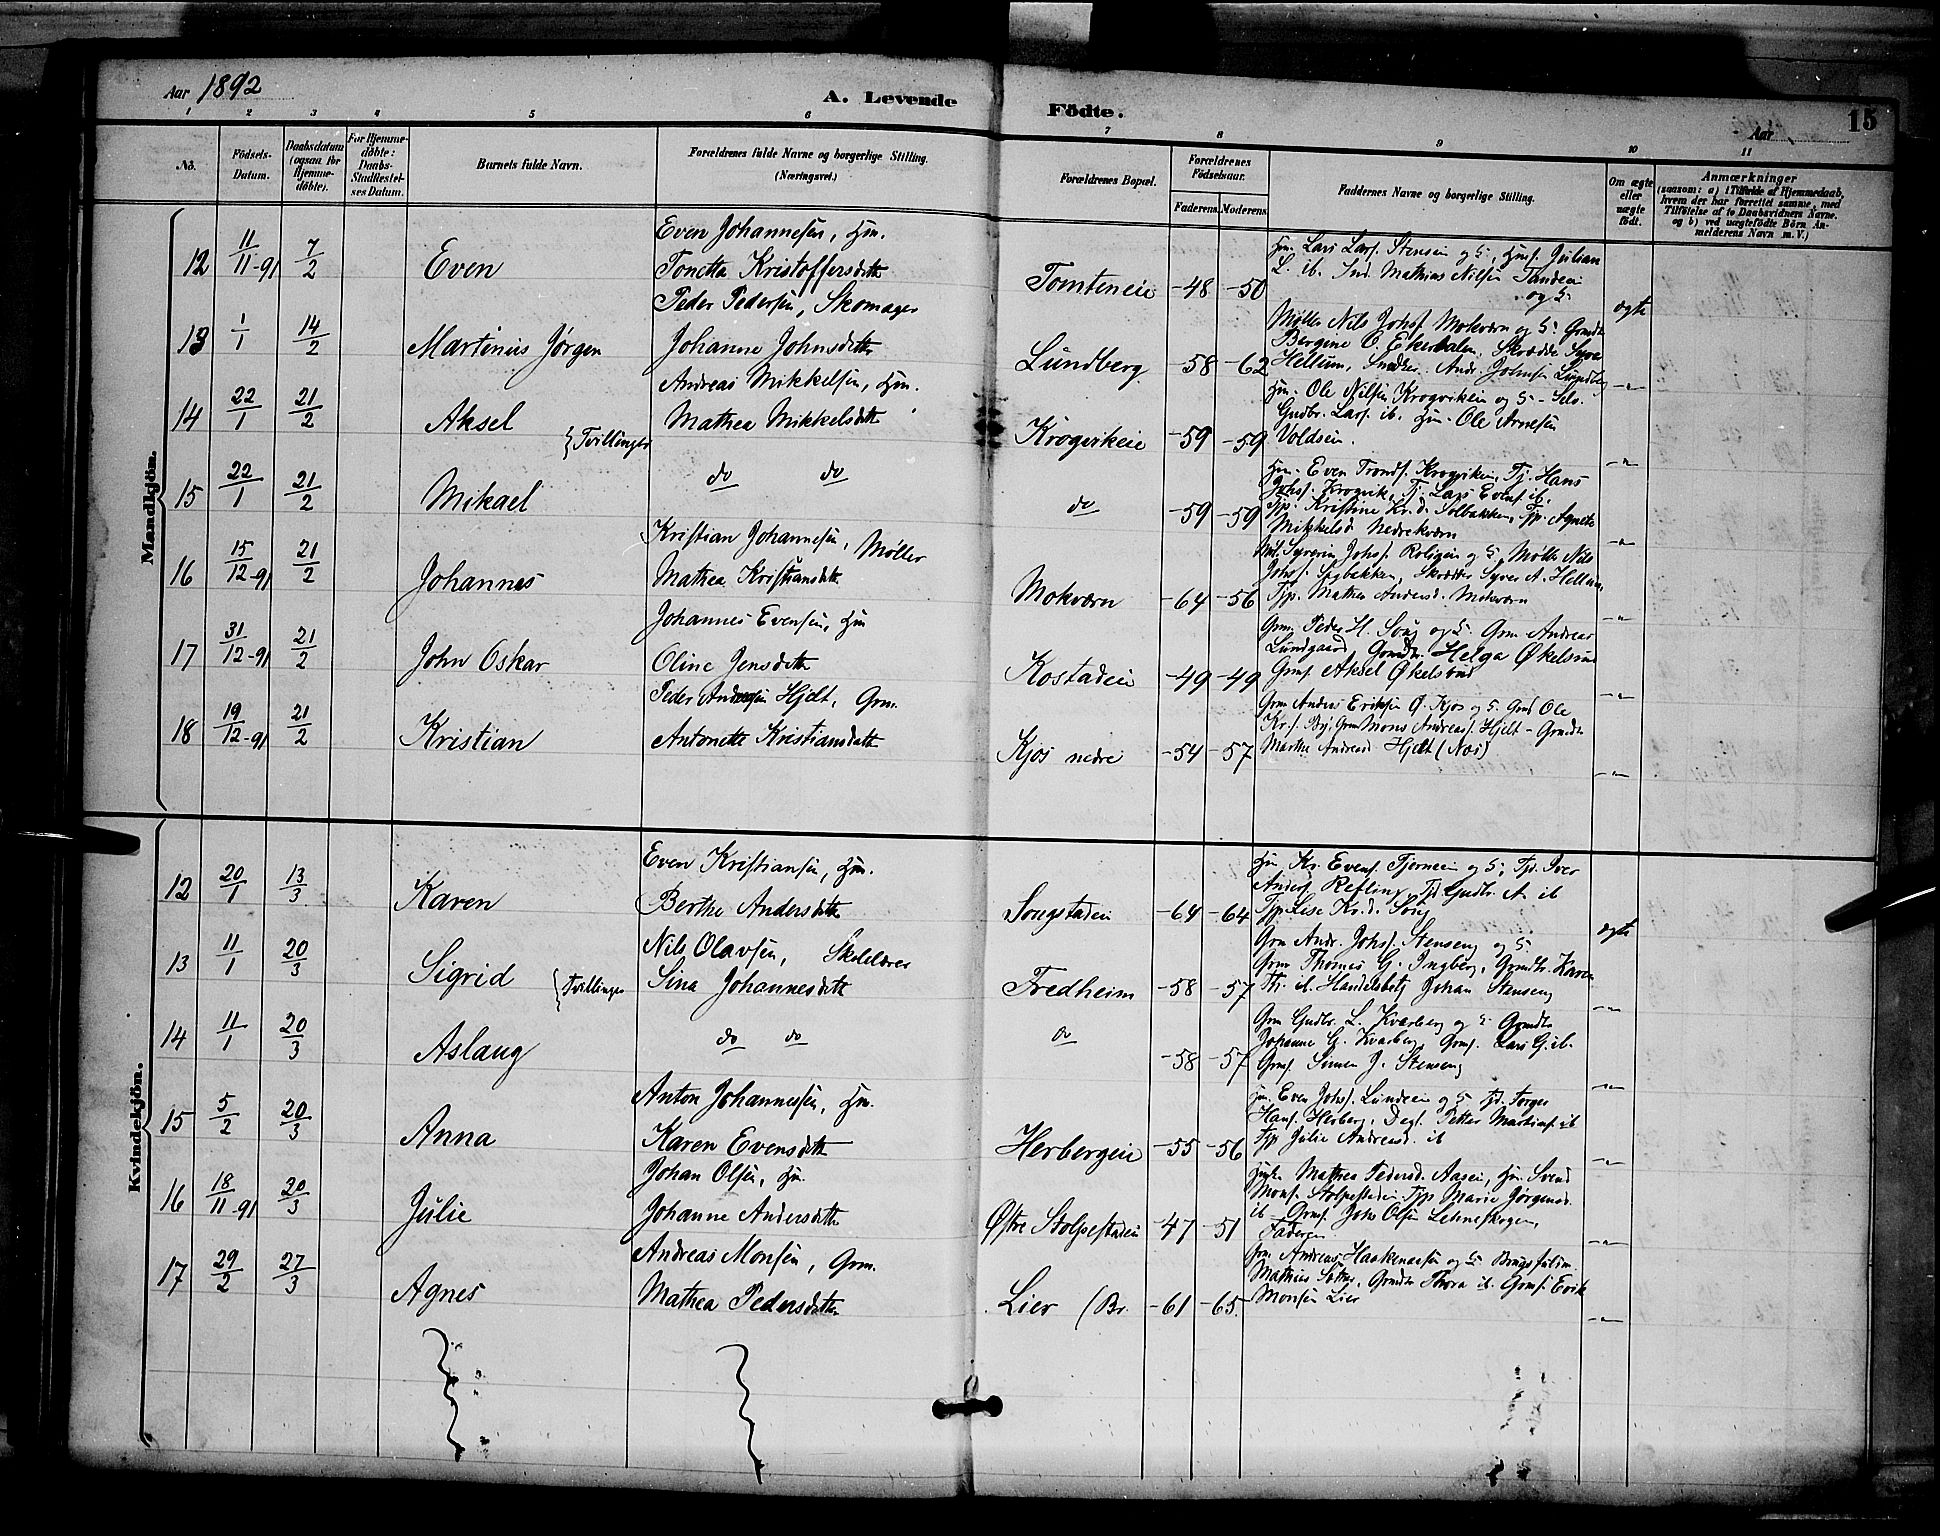 Aar 1892
A. Levende Födte.
Aar
15
1 2 3 4 5 6 7 8 9 10 11
No.
Födsels-Datum.
Daabsdatum (ogsaa for Hjemmedöbte).
For Hjemmedöbte: Daabs-Stadfæstelses Datum.
Barnets fulde Navn.
Forældrenes fulde Navne og borgerlige Stilling. (Næringsvei.)
Forældrenes Bopæl.
Forældrenes Födselsaar.
Faderens. Moderens.
Faddernes Navne og borgerlige Stilling.
Om ægte eller uægte födt.
Anmærkninger
(saasom: a) i Tilfælde af Hjemmedaab, hvem der har forrettet samme, med Tilföielse af to Daabsvidners Navne. og b) ved uægtefödte Börn Anmelderens Navn m. V.)
Mandkjön.
12 11/11-91 7/2 Even
Even Johannesen, Hm.
Tonetta Kristoffersdatt
Tomteneie -48 -50
Hm. Lars Lars. Stensein og H, Husf. Julian
L. ib. Ind. Mathias Nilsen Sandeie
og H
ægte
13 1/1 14/2 Martinius Jørgen
Peder Pedersen, Skomager
Johanne Johnsdatt
Lundberg -58 -62
Møller Nils Johs. Mokværn og H. Grmdtr
Bergine O. Ekerbalen, Skrædder Syver
Hellum, Snedker Andr. Johnsen Lundberg
-"-
14 22/1 21/2 Aksel } Tvillinger
Andreas Mikkelsen, Hm.
Mathea Mikkelsdatt
Krogvikeie -59 -59
Hm. Ole Nilsen Krogvikein og H - Sels.
Gudbr. Lars. ib. Hm. Ole Arnesen
Voldsein.
-"-
15 22/1 21/2 Mikael
do do
do -59 -59
Hm. Even Tronds. Krogvikein, Tj. Hans
Johs. Krogvik, Tj. Lars Evens. ib.
Tjp. Kristine Kr.d. Solbakken, Tjp. Agnete
Mikkelsd. Nedrekværn
-"-
16 15/12-91 21/2 Johannes
Kristian Johannesen, Møller
Mathea Kristiansdatt
Mokværn -64 -56
Syverin Johs. Roligein og H, Møller Nils
Johs. Sagbakken, Skrædder Syver A. Hellum,
Tjp. Mathea Andersd. Mokværn
-"-
17 31/12-91 21/2 John Oskar
Johannes Evensen, Hm
Oline Jensdatt
Kostadeie -49 -49
Grm. Peder H. Soug og H. Grm Andreas
Lundgaard, Grmdtr. Helga Økelsrud
Grmf. Aksel Økelsrud
-"-
18 19/12-91 21/2 Kristian
Peder Andreasen Hjelt, Grm.
Antonette Kristiansdatt
Kjos nedre -54 -57
Grm Anders Eriksen Ø. Kjos og H. Grmd Ole
Kr.s. By, Grm Mons Andreas. Hjelt - Grmdtr
Marthe Andreasd. Hjelt (Næs)
-"-
Kvindekjön.
12 20/1 13/3 Karen
Even Kristiansen, Hm.
Berthe Andersdatt
Sougstadeie -64 -64
Hm Kr. Evens. Tjerneie og H, Tjd. Iver
Anders. Refling, Tjd Gudbr. A. ib
Tjp Lise Kr.d. Soug
ægte
13 11/1 20/3 Sigrid } Tvillinger
Nils Olavsen, Skolelærer
Sina Johannesdatt
Fredheim -58 -57
Grm Andr. Johs. Stenseng og H
Grm Thomas G. Ingberg, Grmdtr. Karen
Th. ib. Handelsbetj Johan Stenseng
-"-
14 11/1 20/3 Aslaug
do do
do -58 -57
Grm Gudbr. L. Kværberg og H Grmdtr
Johanne G. Kvarberg, Grmf. Lars G. ib.
Grmf. Simen J. Stenseng
-"-
15 5/2 20/3 Anna
Anton Johannessen, Hm.
Karen Evensdatt
Herbergeie -55 -56
Hm. Even Johs. Lundeie og H Tjd. Torger
Hans. Herberg, Dagl. Petter Martins. ib
Tjp Julie Andreasd. ib
-"-
16 18/11-91 20/3 Julie
Johan Olsen, Hm.
Johanne Andersdatt
Østre Stolpestadeie -47 -51
Mathea Pedersd. Aasei, Hm. Svend
Mons. Stolpestadeie, Tjp Marie Jørgensd.
ib - Grmf. Johs Olsen Lehneskogen,
Faderen.
-"-
17 29/2 27/3 Agnes
Andreas Monsen, Grm.
Mathea Pedersdatter
Lier (Br. -61 -65
Grm. Andreas Haakensen og H Brugsfuldm.
Mathias Sætre, Grmdtr Thora ib. Grmf. Erik
Monsen Lier
-"-